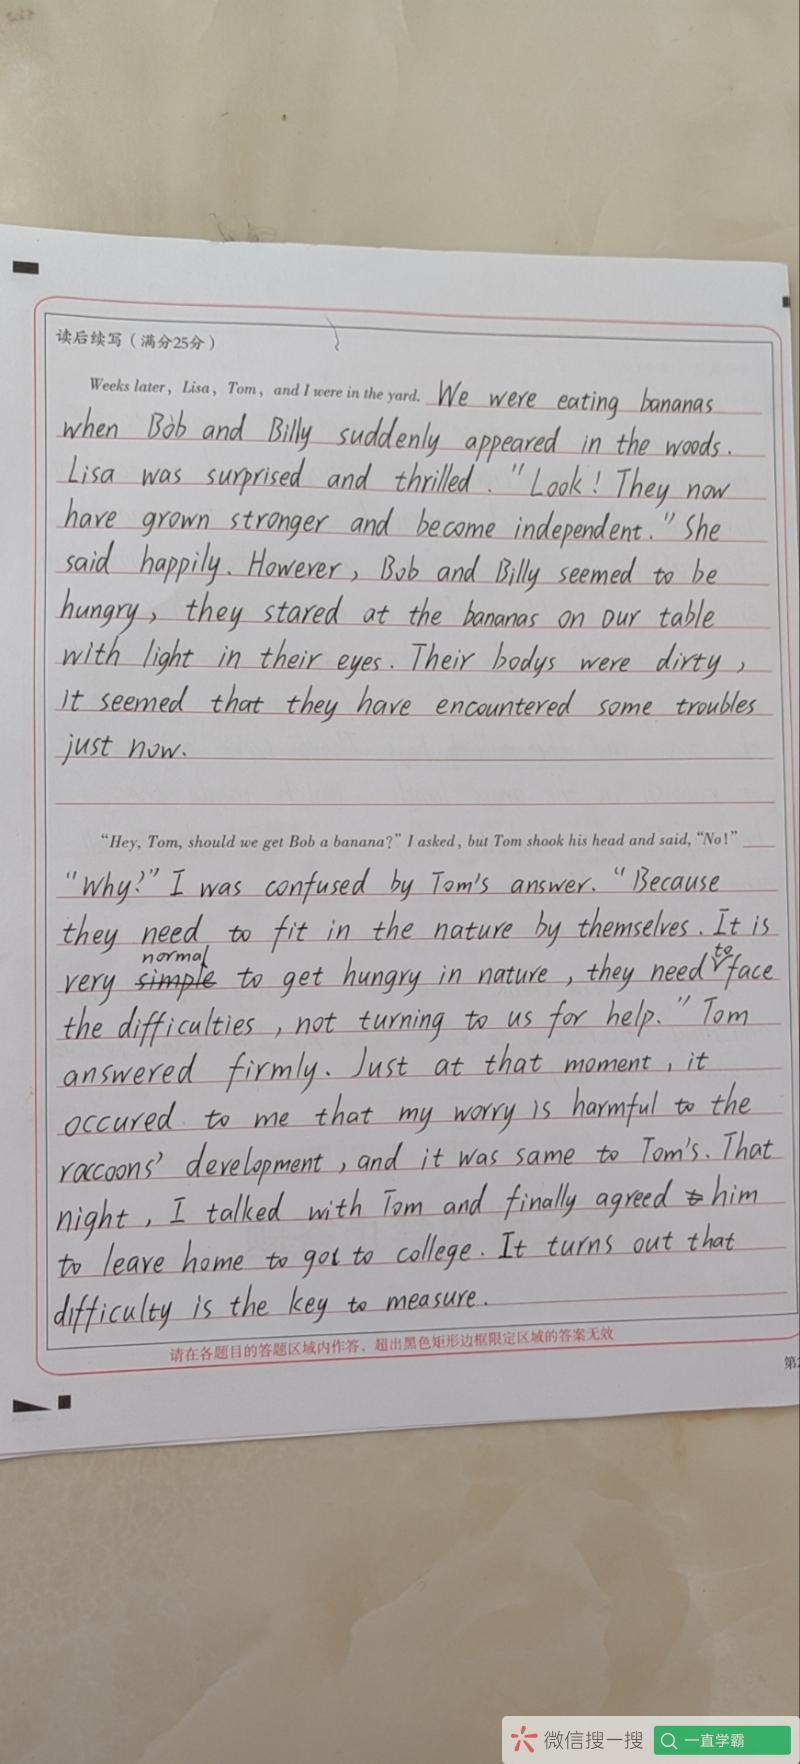 读后续写（满分25分）
Weeks later, Lisa, Tom, and I were in the yard. We were eating bananas
when Bob and Billy suddenly appeared in the woods.
Lisa was surprised and thrilled. "Look! They now
have grown stronger and become independent." She
said happily. However, Bob and Billy seemed to be
hungry, they stared at the bananas on our table
with light in their eyes. Their bodys were dirty,
it seemed that they have encountered some troubles
just now.
"Hey, Tom, should we get Bob a banana?" I asked, but Tom shook his head and said, "No!"
"Why?" I was confused by Tom's answer. "Because
they need to fit in the nature by themselves. It is
very simple normal to get hungry in nature, they need to face
the difficulties, not turning to us for help." Tom
answered firmly. Just at that moment, it
occured to me that my worry is harmful to the
raccoons' development, and it was same to Tom's. That
night, I talked with Tom and finally agreed him
to leave home to got to college. It turns out that
difficulty is the key to measure.
请在各题目的答题区域内作答，超出黑色矩形边框限定区域的答案无效
第2
微信搜一搜
一直学霸